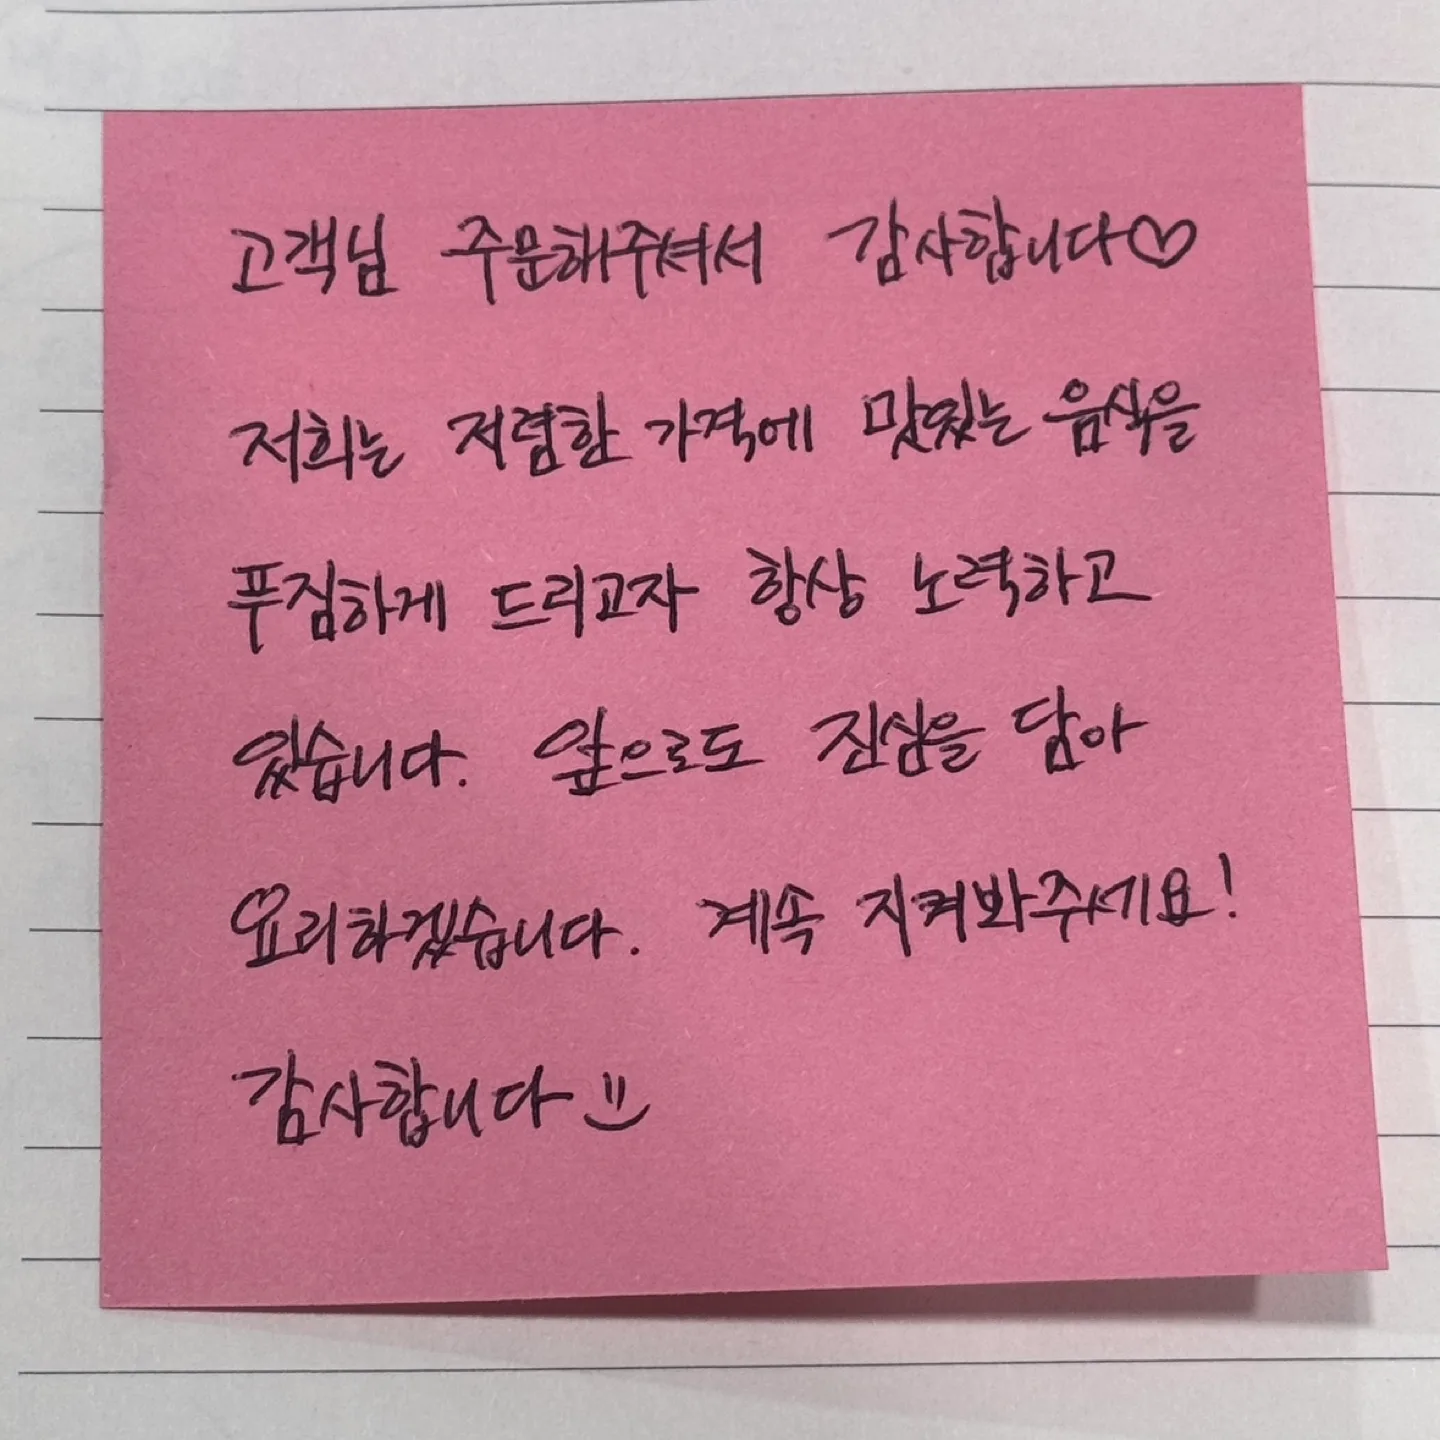 고객님 주문해주셔서 감사합니다♡
저희는 저렴한 가격에 맛있는 음식을
푸짐하게 드리고자 항상 노력하고
있습니다. 앞으로도 진심을 담아
요리하겠습니다. 계속 지켜봐주세요!
감사합니다